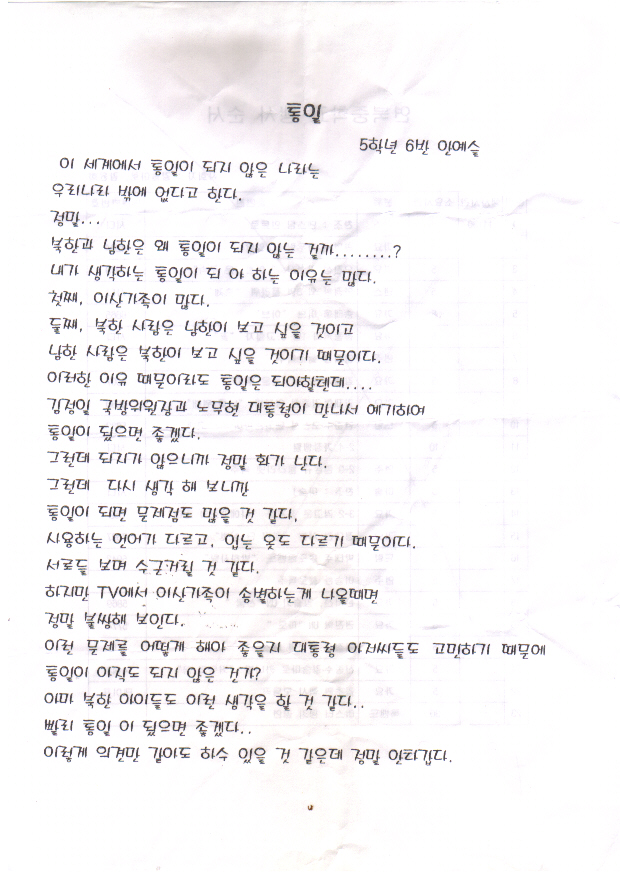 통일
5학년 6반 안예슬
이 세계에서 통일이 되지 않은 나라는
우리나라 밖에 없다고 한다.
정말...
북한과 남한은 왜 통일이 되지 않는 걸까........?
내가 생각하는 통일이 되 야 하는 이유는 많다.
첫째, 이산가족이 많다.
둘째, 북한 사람은 남한이 보고 싶을 것이고
남한 사람은 북한이 보고 싶을 것이기 때문이다.
이러한 이유 때문이라도 통일은 되야할텐데....
김정일 국방위원장과 노무현 대통령이 만나서 얘기하여
통일이 됬으면 좋겠다.
그런데 되지가 않으니까 정말 화가 난다.
그런데 다시 생각 해 보니깐
통일이 되면 문제점도 많을 것 같다.
사용하는 언어가 다르고, 입는 옷도 다르기 때문이다.
서로들 보며 수군거릴 것 같다.
하지만 TV에서 이산가족이 송별하는게 나올때면
정말 불쌍해 보인다.
이런 문제를 어떻게 해야 좋을지 대통령 아저씨들도 고민하기 때문에
통일이 아직도 되지 않은 건가?
아마 북한 아이들도 이런 생각을 할 것 같다..
빨리 통일 이 됬으면 좋겠다..
이렇게 의견만 같아도 할수 있을 것 같은데 정말 안타깝다.